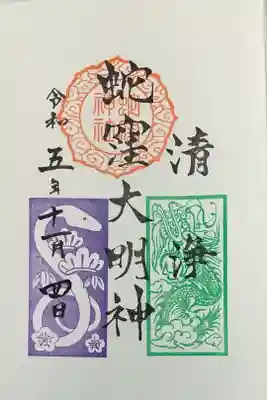 清浄
蛇窪大明神
令和五年十一月四日